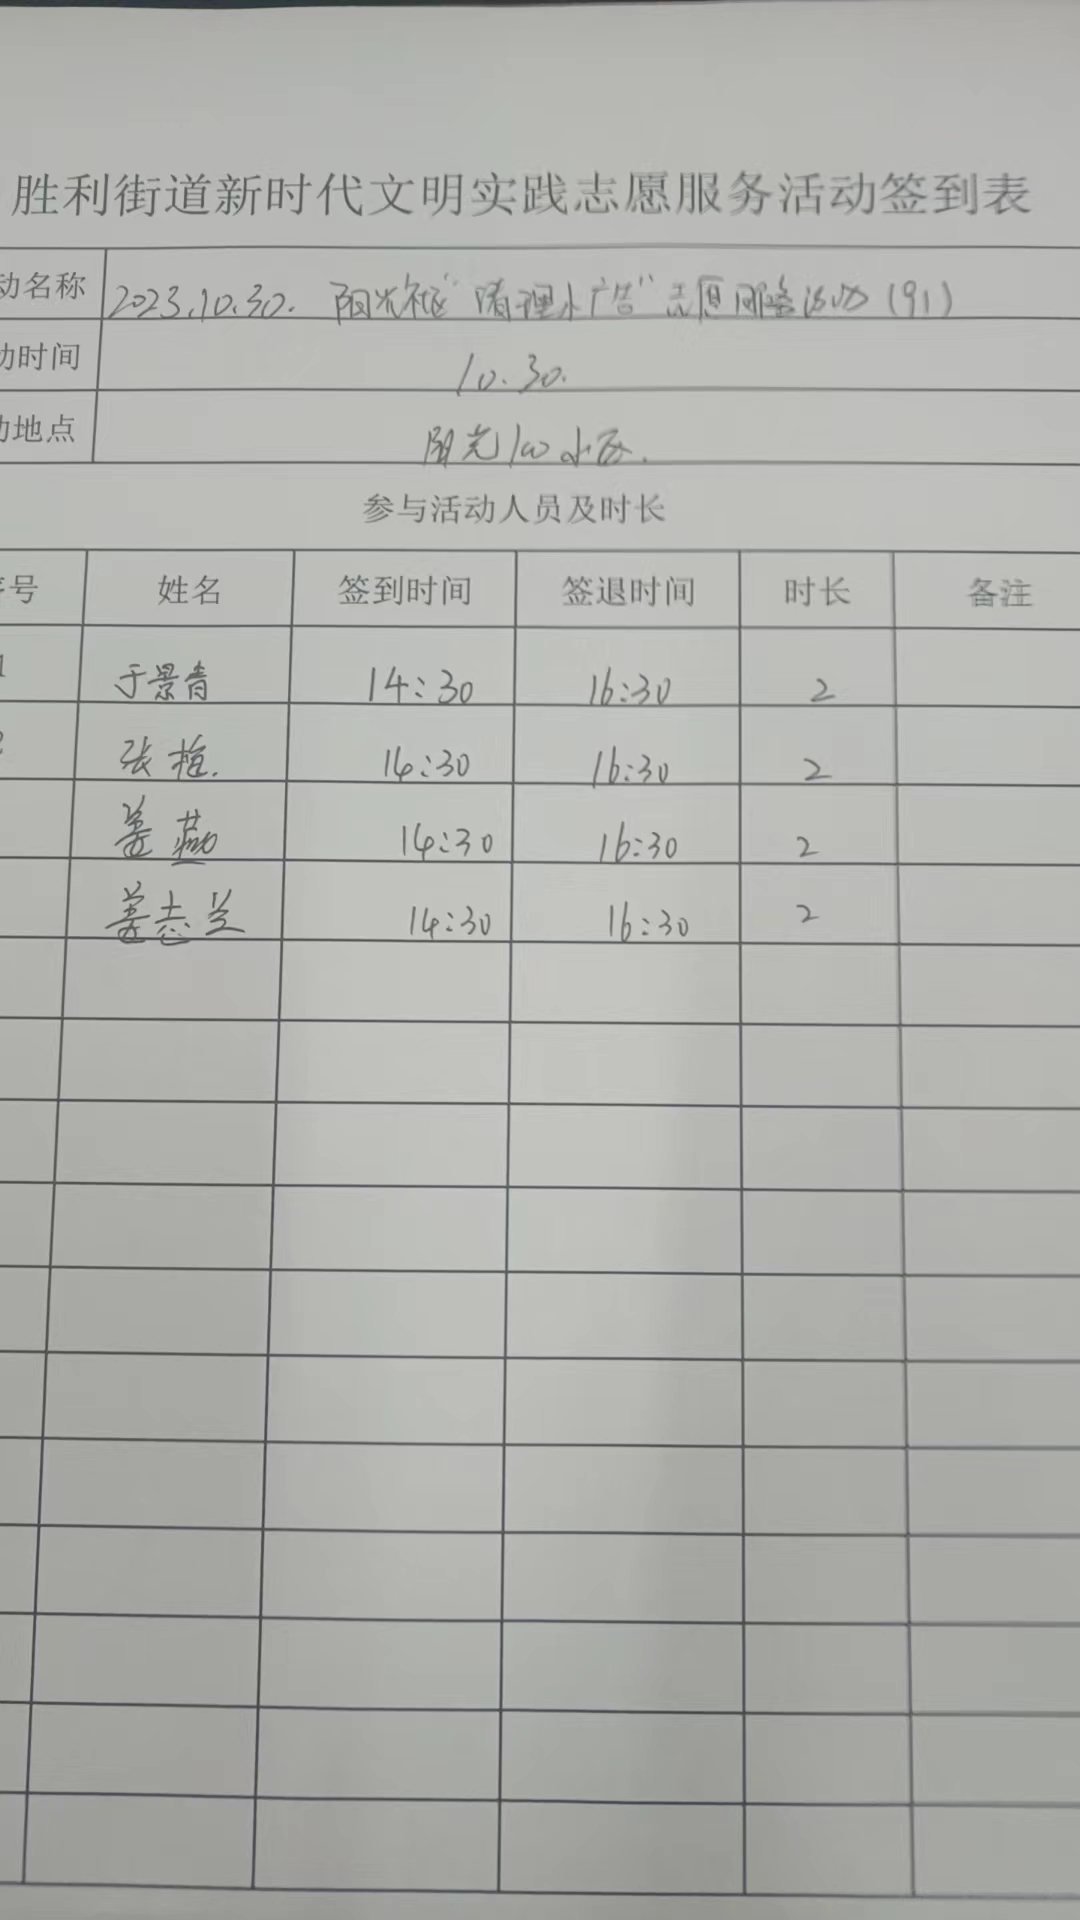 胜利街道新时代文明实践志愿服务活动签到表
动名称 2023.10.30. 阳光社区"清理小广告"志愿服务活动(91)
动时间 10.30.
动地点 阳光100小区.
参与活动人员及时长
序号 姓名 签到时间 签退时间 时长 备注
1 于景青 14:30 16:30 2
2 张 14:30 16:30 2
姜燕 14:30 16:30 2
姜志兰 14:30 16:30 2